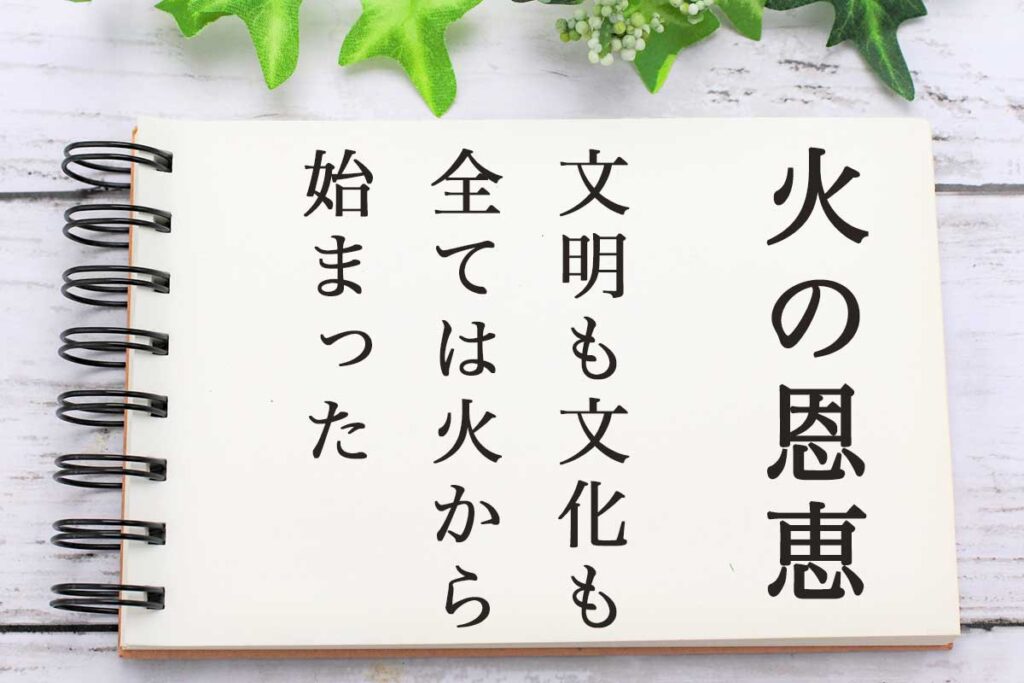 火の恩恵
文明も文化も
全ては火から
始まった